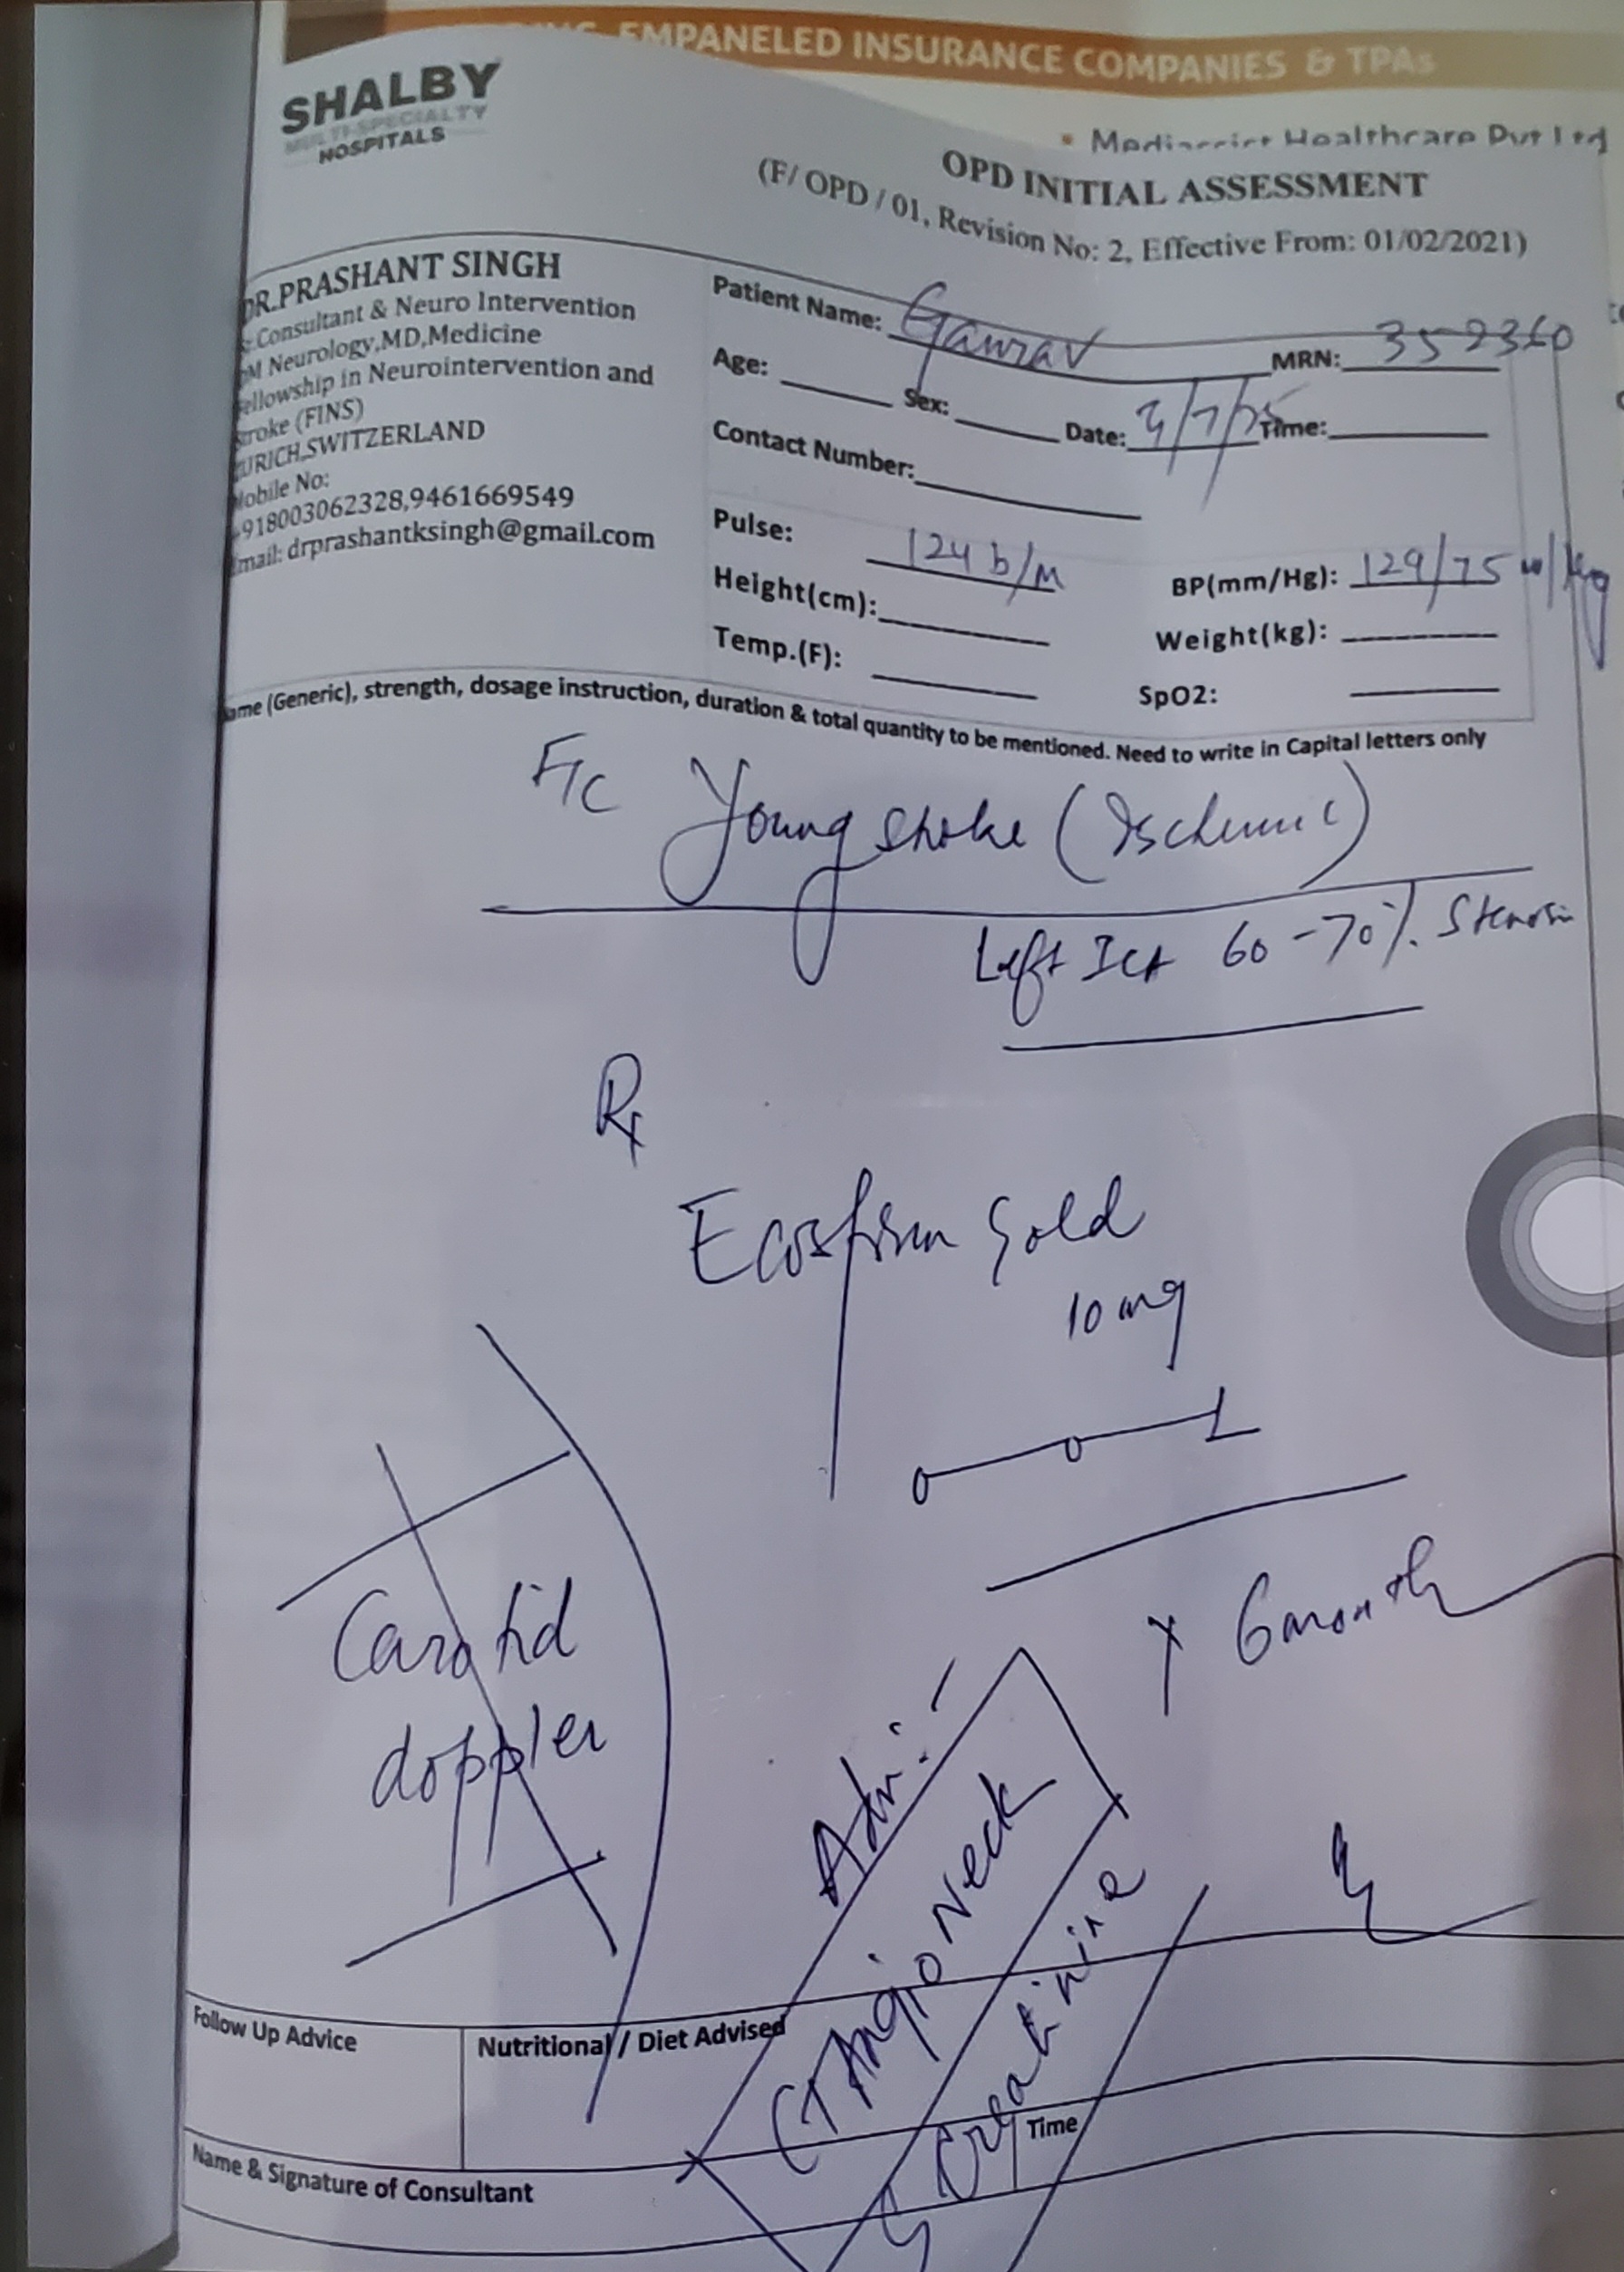 EMPANELED INSURANCE COMPANIES & TPAs
SHALBY
MULTI-SPECIALTY
HOSPITALS
Healthcare Pvt Ltd
OPD INITIAL ASSESSMENT
(F/ OPD / 01, Revision No: 2, Effective From: 01/02/2021)
DR.PRASHANT SINGH
Consultant & Neuro Intervention
M Neurology,MD,Medicine
ellowship in Neurointervention and
troke (FINS)
URICH,SWITZERLAND
Mobile No:
918003062328,9461669549
mail: drprashantksingh@gmail.com
Patient Name: Gaurav
MRN: 352360
Age:
Sex:
Date: 3/7/25
Time:
Contact Number:
Pulse: 124 b/m
BP(mm/Hg): 129/75
Height(cm):
Weight(kg):
Temp.(F):
SpO2:
ame (Generic), strength, dosage instruction, duration & total quantity to be mentioned. Need to write in Capital letters only
Young stroke (Ischemic)
Left ICA 60-70% Stenosis
Rx
Ecosprin Gold
10 mg
0-0-1
x 6 month
Carotid
doppler
Adv:-
CT Angio Neck
S Creatinine
Follow Up Advice
Nutritional / Diet Advised
Name & Signature of Consultant
Time